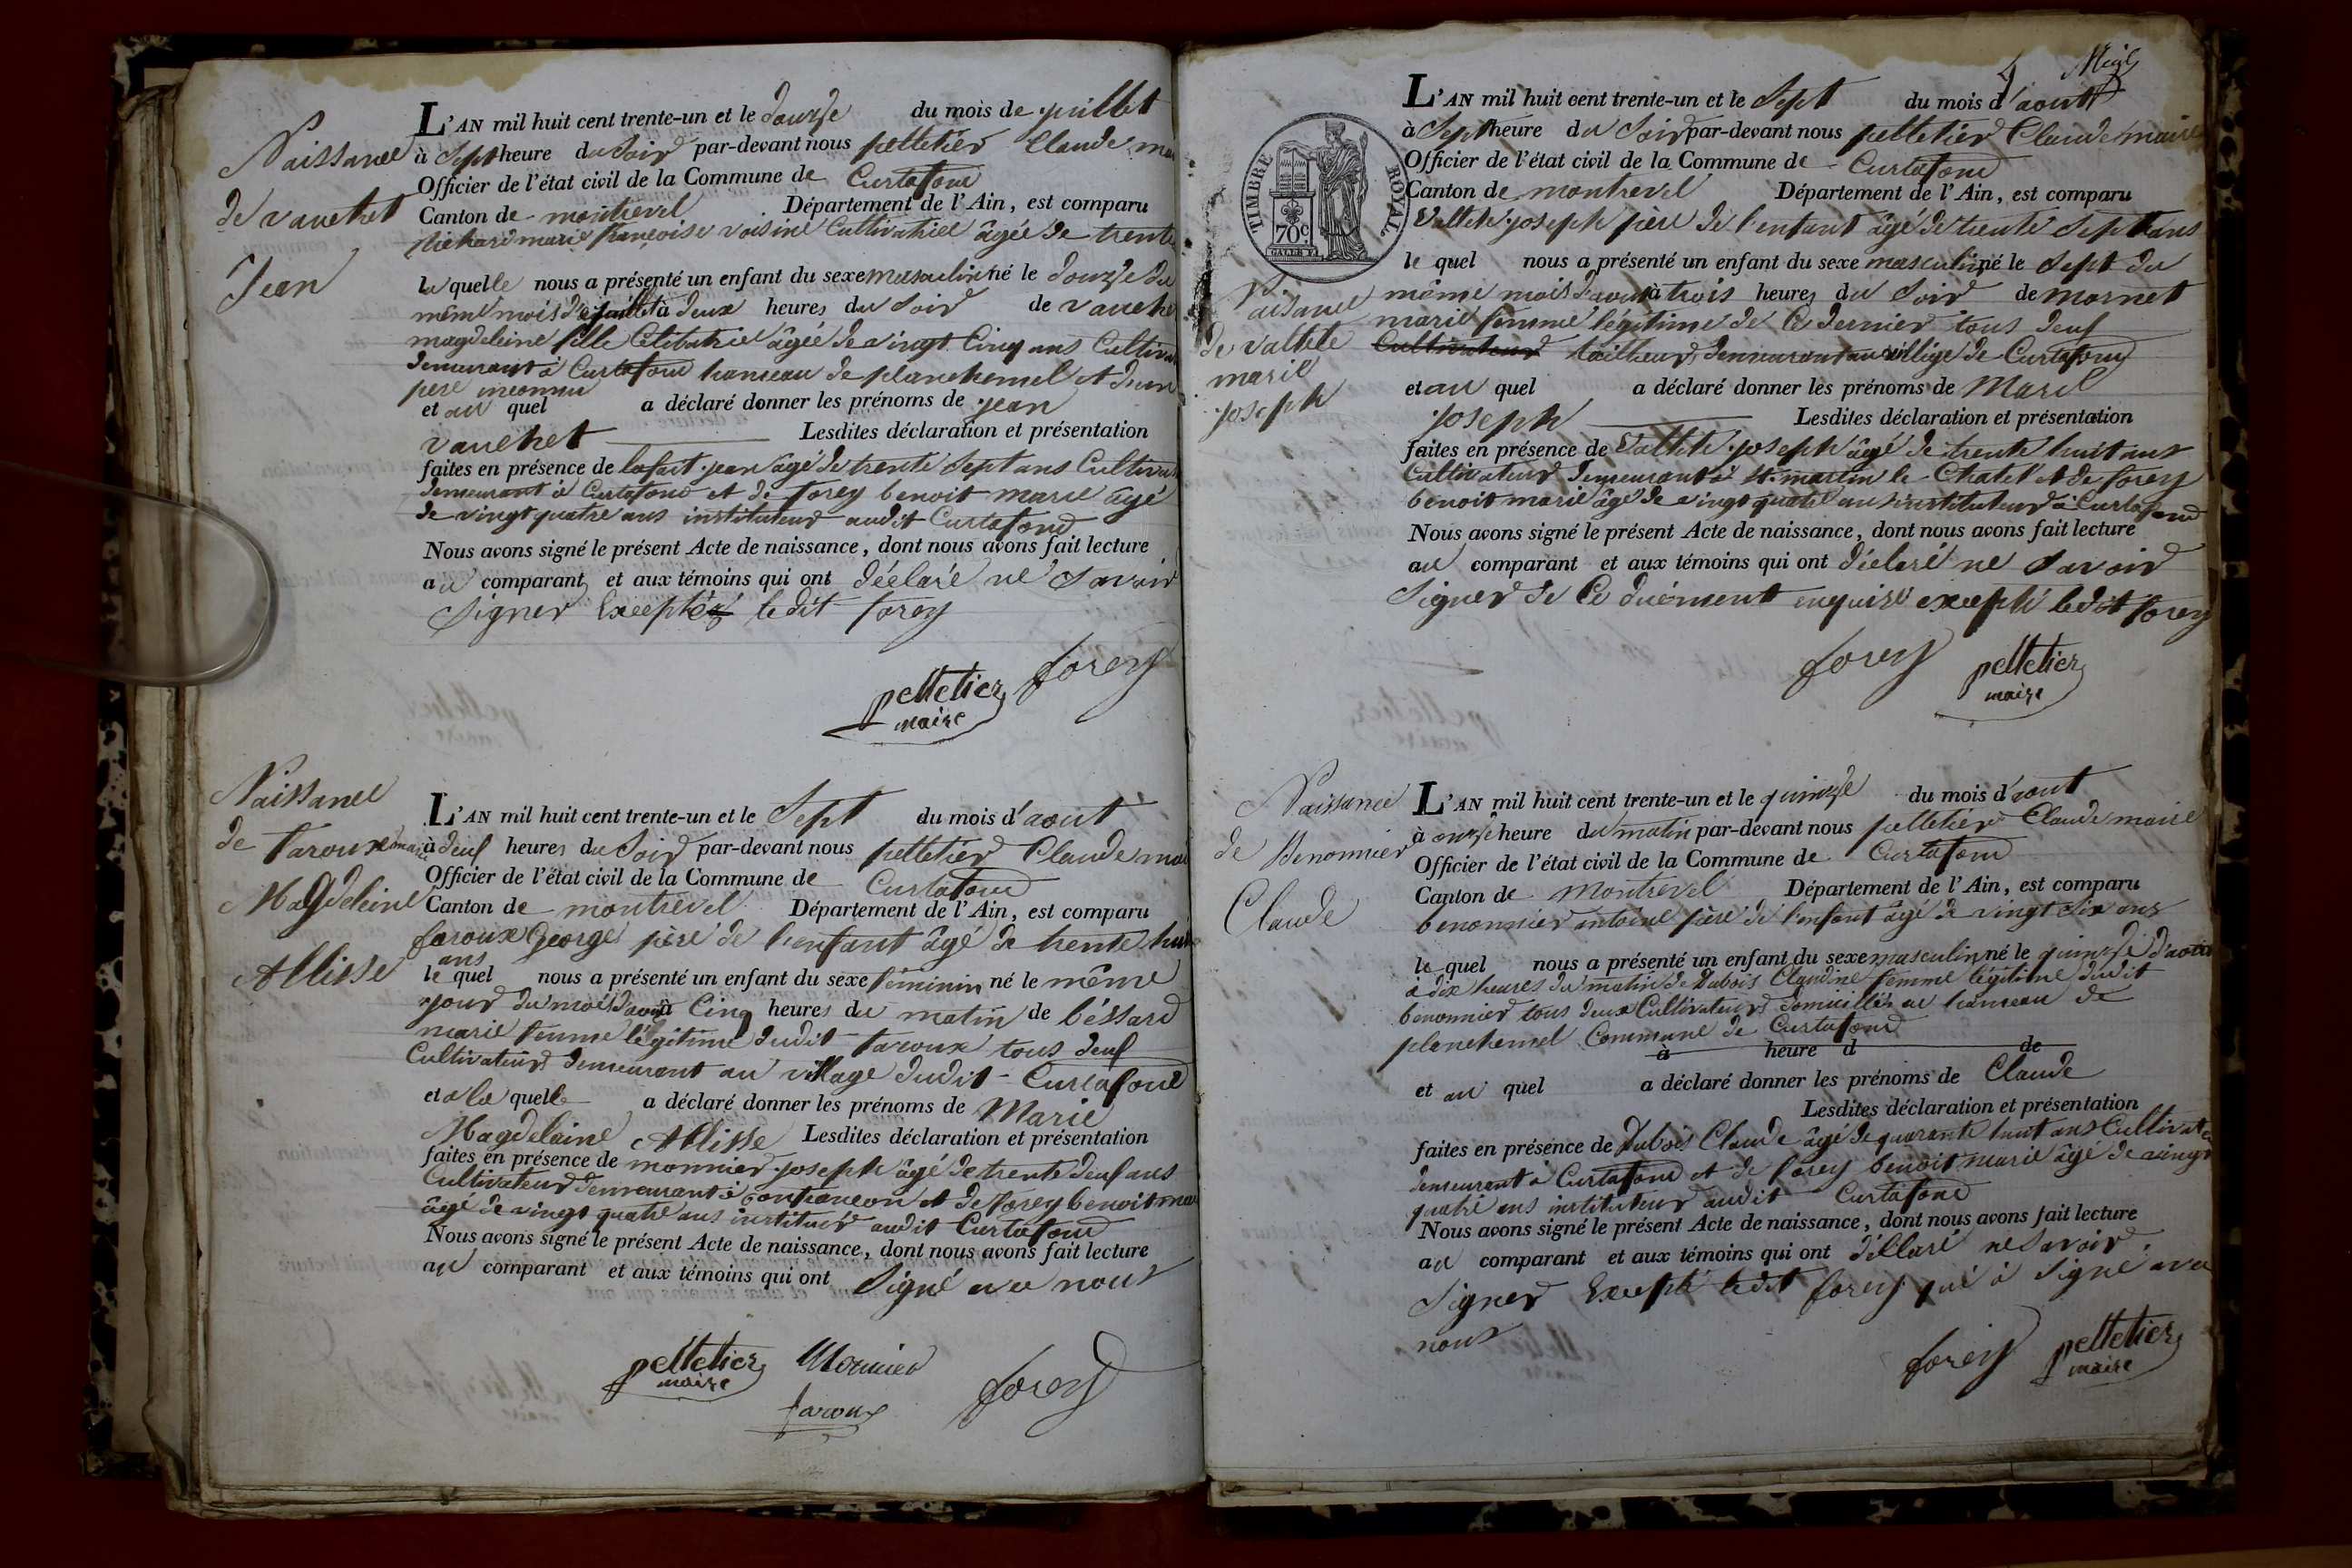 Naissance
de vauchet
Jean
L'AN mil huit cent trente-un et le douze du mois de juillet
à Sept heure du Soir par-devant nous pelletier Claude mai
Officier de l'état civil de la Commune de Curtafond
Canton de montrevel Département de l'Ain, est comparu
Richard marie françoise voisine Cultivatrice âgée de trente
la quelle nous a présenté un enfant du sexe masculin né le douze du
même mois de juillet à deux heures du Soir de vauchet
magdeleine fille Célibatrie âgée de vingt Cinq ans Cultiva
demeurant à Curtafond hameau de planchemel et d'un
père inconnu
et au quel a déclaré donner les prénoms de jean
vauchet Lesdites déclaration et présentation
faites en présence de lafait jean âgé de trente Sept ans Cultivat
demeurant à Curtafond et de forey benoit marie âgé
de vingt quatre ans instituteur audit Curtafond
Nous avons signé le présent Acte de naissance, dont nous avons fait lecture
au comparant et aux témoins qui ont déclaré ne Savoir
Signer Excepté ledit forey
pelletier
maire
forey
Naissance
de faroux marie
Magdeleine
Allisse
L'AN mil huit cent trente-un et le Sept du mois d'aout
à deux heures du Soir par-devant nous pelletier Claude mai
Officier de l'état civil de la Commune de Curtafond
Canton de montrevel Département de l'Ain, est comparu
faroux George père de l'enfant âgé de trente huit
ans
le quel nous a présenté un enfant du sexe féminin né le même
jour du mois d'aout à Cinq heures du matin de béssard
marie femme légitime dudit faroux tous deux
Cultivateurs demeurant au village dudit Curtafond
et a la quelle a déclaré donner les prénoms de Marie
Magdelaine Allisse Lesdites déclaration et présentation
faites en présence de monnier joseph âgé de trente deux ans
Cultivateur demeurant à Confrancon et de forey benoit mar
âgé de vingt quatre ans institueur audit Curtafond
Nous avons signé le présent Acte de naissance, dont nous avons fait lecture
au comparant et aux témoins qui ont Signé avec nous
pelletier
maire
Monnier
forey
faroux
TIMBRE ROYAL
70c
L'AN mil huit cent trente-un et le Sept du mois d'aout
à Sept heure du Soir par-devant nous pelletier Claude maire
Officier de l'état civil de la Commune de Curtafond
Canton de montrevel Département de l'Ain, est comparu
Valtete joseph père de l'enfant âgé de trente Sept ans
le quel nous a présenté un enfant du sexe masculin né le Sept du
Naisance
de valtete
marie
joseph
même mois d'aout à trois heures du Soir de mornet
marie femme légitime de Ce dernier tous deux
Cultivateur tailleurs demeurant au village de Curtafond
et au quel a déclaré donner les prénoms de Marie
joseph Lesdites déclaration et présentation
faites en présence de Valtete joseph âgé de trente huit ans
Cultivateur demeurant à St. martin le Chatel et de forey
benoit marie âgé de vingt quatre ans instituteur à Curtafond
Nous avons signé le présent Acte de naissance, dont nous avons fait lecture
au comparant et aux témoins qui ont déclaré ne Savoir
Signer de Ce duement enquise excepté ledit forey
forey
pelletier
maire
Naissance
de Benonnier
Claude
L'AN mil huit cent trente-un et le quinze du mois d'aout
à onze heure du matin par-devant nous pelletier Claude maire
Officier de l'état civil de la Commune de Curtafond
Canton de Montrevel Département de l'Ain, est comparu
benonnier antoine père de l'enfant âgé de vingt Six ans
le quel nous a présenté un enfant du sexe masculin né le quinze d'aout
à dix heures du matin de Dubois Claudine femme légitime dudit
benonnier tous deux Cultivateurs domicilies au hameau de
planchemel Commune de Curtafond
à heure d de
et au quel a déclaré donner les prénoms de Claude
Lesdites déclaration et présentation
faites en présence de Dubois Claude âgé de quarante huit ans Cultivate
demeurant à Curtafond et de forey benoit marie âgé de vingt
quatre ans instituteur audit Curtafond
Nous avons signé le présent Acte de naissance, dont nous avons fait lecture
au comparant et aux témoins qui ont déllaré ne Savoir
Signer Excepté ledit forey qui à Signé avec
nous
forey
pelletier
maire